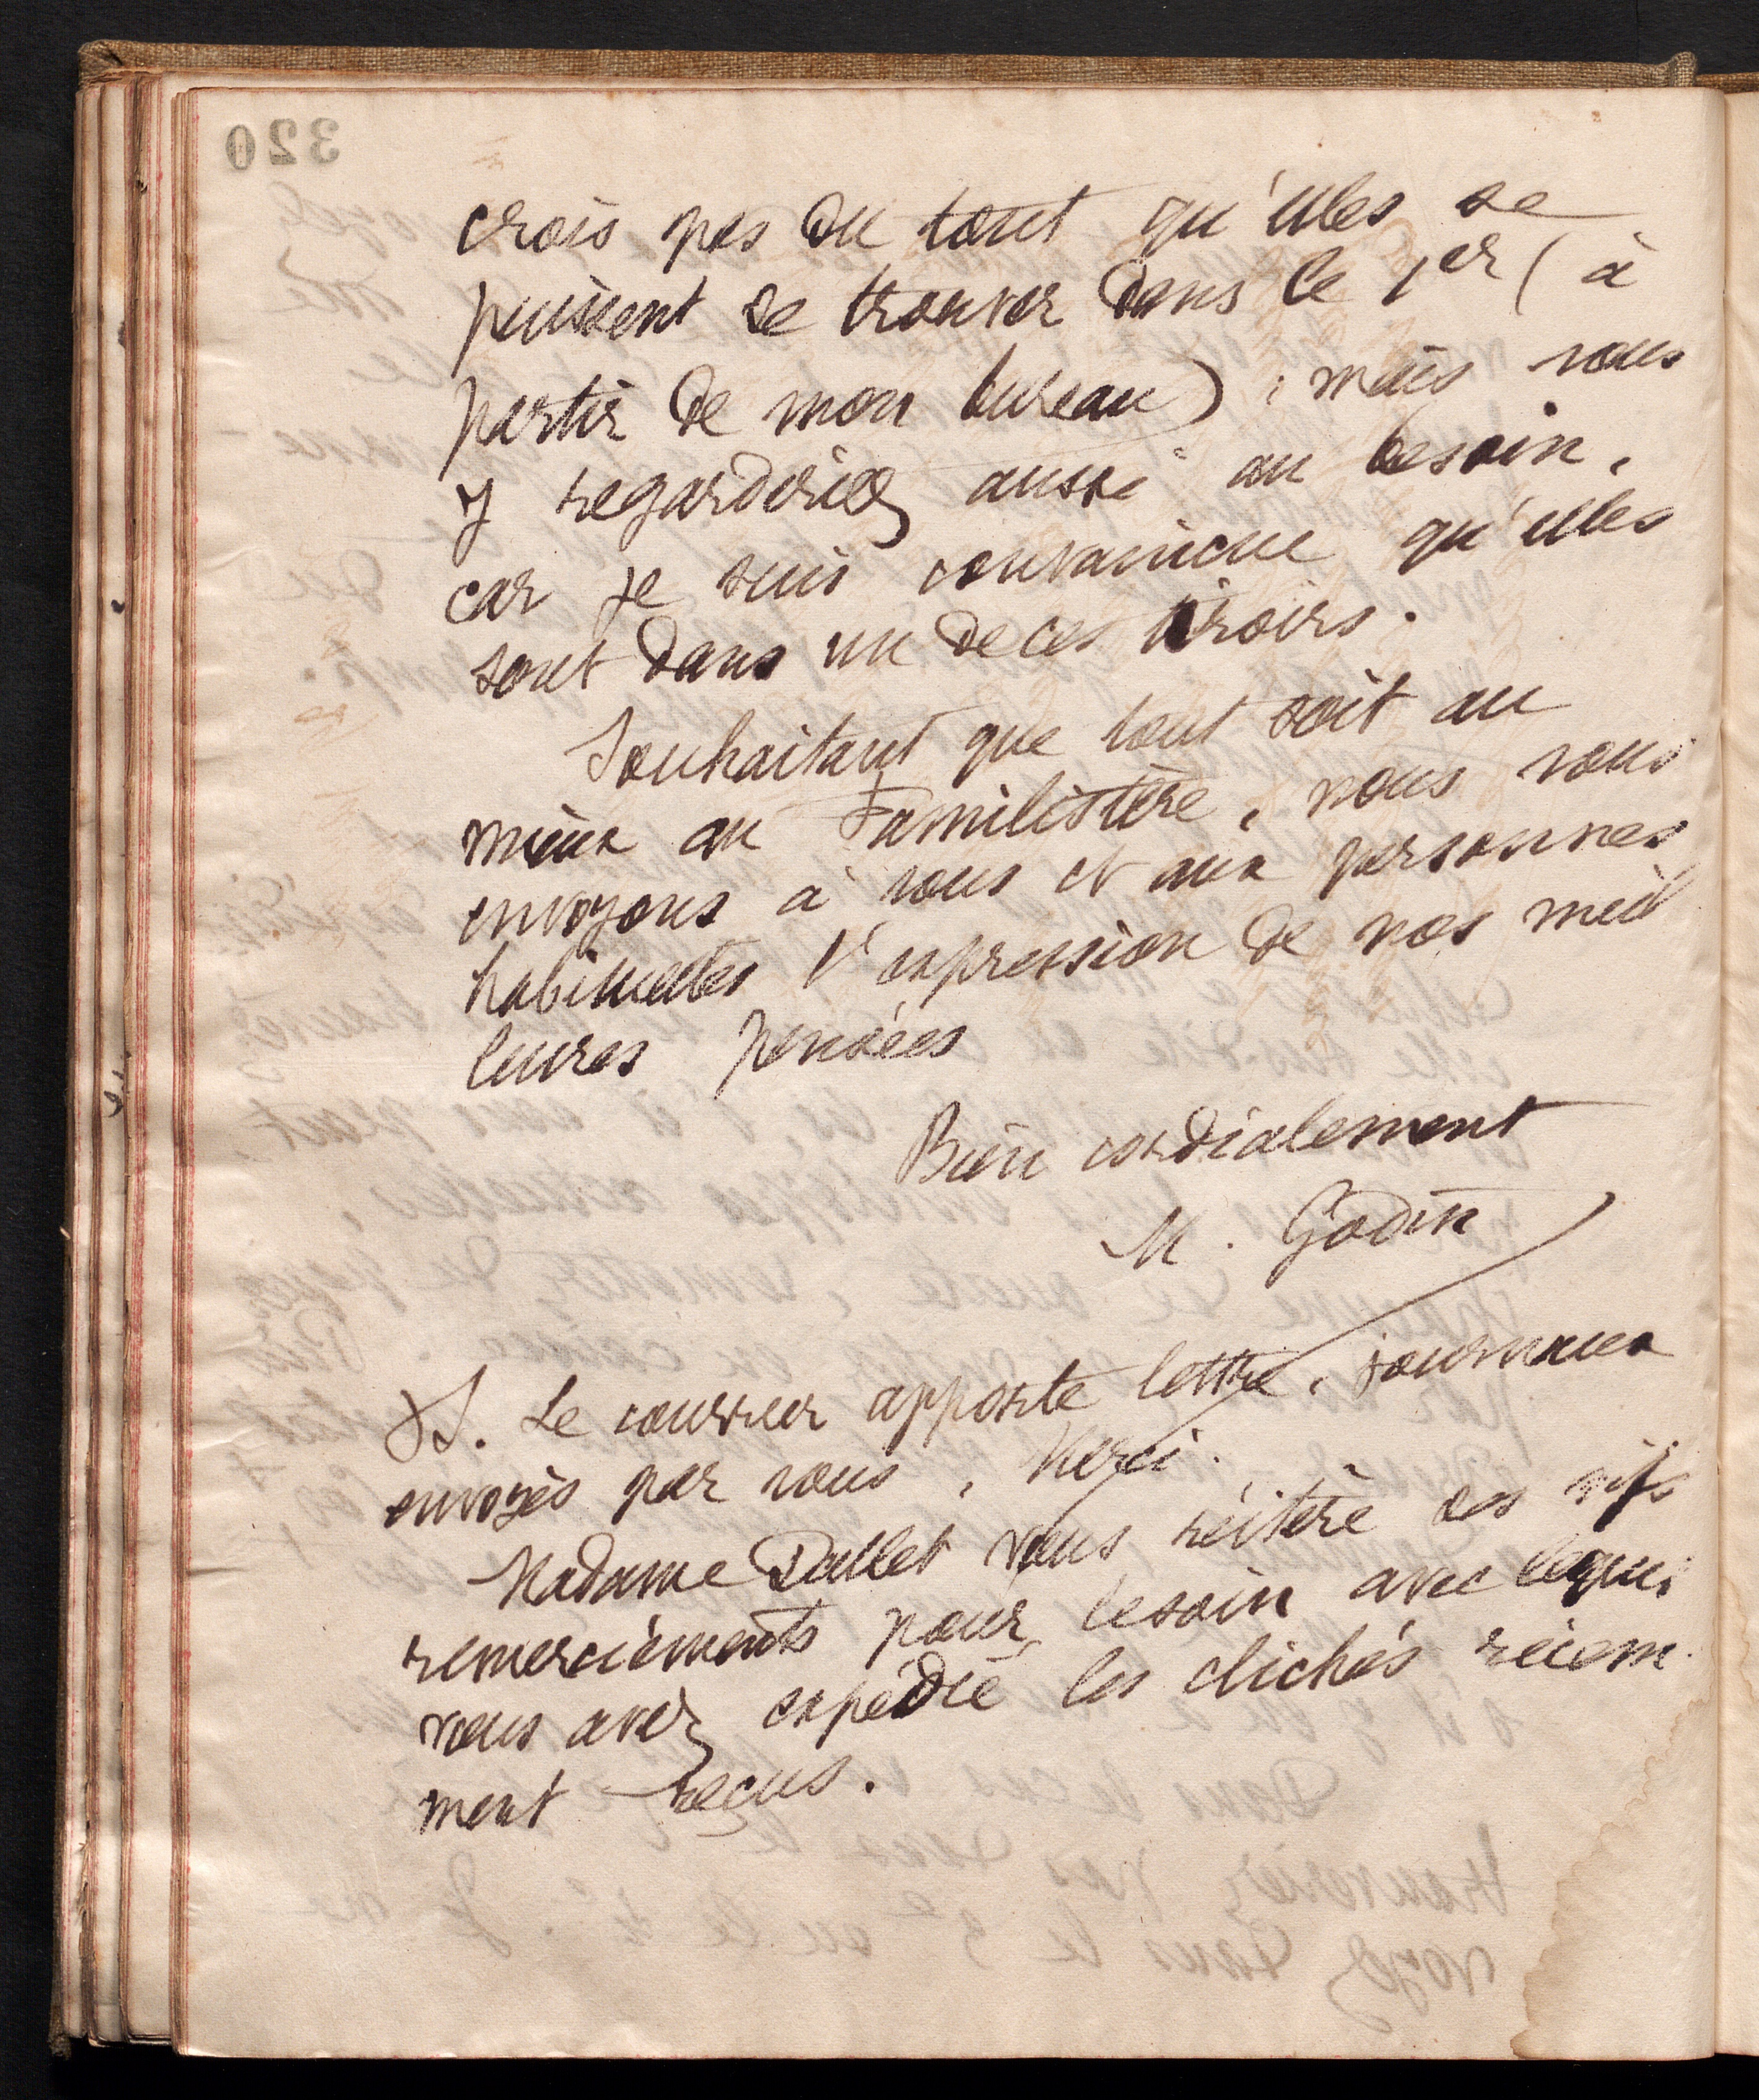 320
crois pas du tout qu'elles se
puissent se trouver dans le 1er (à
partir de mon bureau), mais vous
y regarderiez aussi au besoin,
car je suis convaincue qu'elles
sont dans un de ces tiroirs.
Souhaitant que tout soit au
mieux au Familistère, nous vous
envoyons à vous et aux personnes
habituelles l'expression de nos meil
leures pensées
Bien cordialement
M. Godin
P.S. Le courrier apporte lettre, journaux
envoyés par vous, Merci.
Madame Dallet vous réitère ses vifs
remerciements pour le soin avec lequel
vous avez expédié les clichés récem
ment reçus.